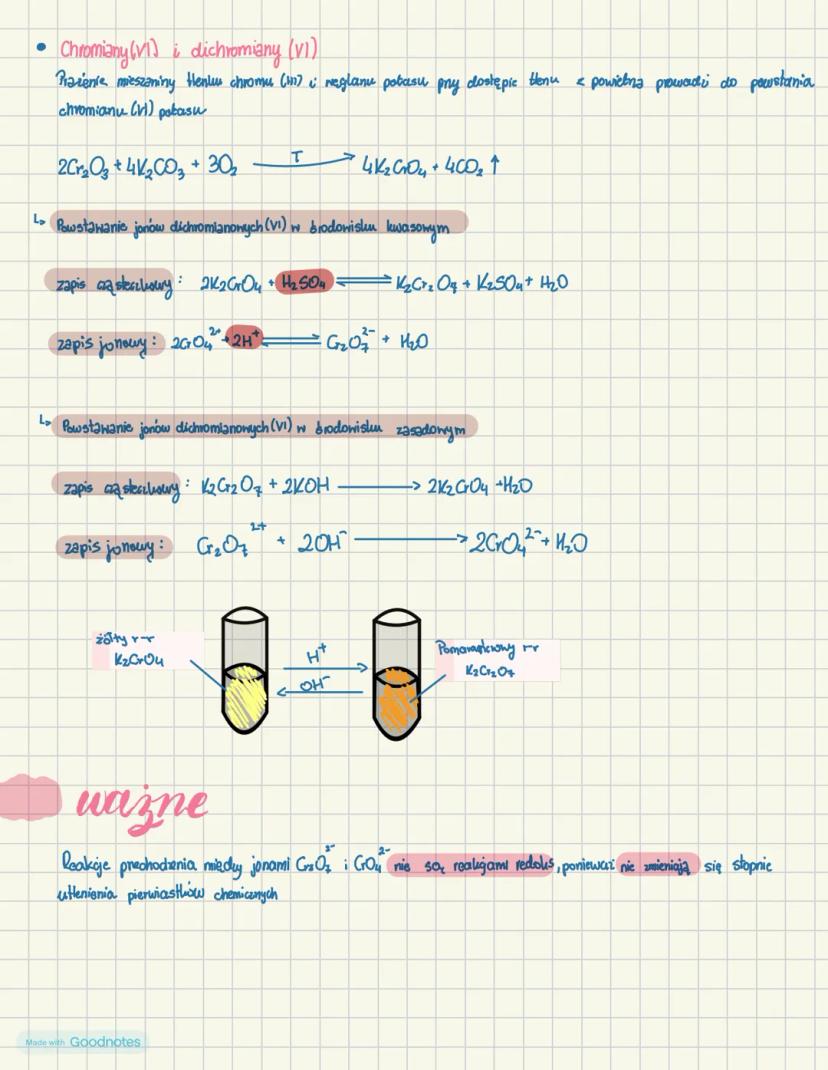 • Chromiany(VI) i dichromiany (VI)
Prażenie mieszaniny tlenku chromu (III) i węglanu potasu przy dostępie tlenu z powietrza prowadzi do powstania
chromianu (VI) potasu
2Cr₂O₃ + 4K₂CO₃ + 3O₂ —T→ 4K₂CrO₄ + 4CO₂ ↑
↳ Powstawanie jonów dichromianowych (VI) w środowisku kwasowym
zapis cząsteczkowy : 2K₂CrO₄ + H₂SO₄ ⇌ K₂Cr₂O₇ + K₂SO₄ + H₂O
zapis jonowy : 2CrO₄²⁺ + 2H⁺ ⇌ Cr₂O₇²⁻ + H₂O
↳ Powstawanie jonów dichromianowych (VI) w środowisku zasadowym
zapis cząsteczkowy : K₂Cr₂O₇ + 2KOH → 2K₂CrO₄ + H₂O
zapis jonowy : Cr₂O₇²⁺ + 2OH⁻ → 2CrO₄²⁻ + H₂O
żółty r-r
K₂CrO₄
H⁺
OH⁻
Pomarańczowy r-r
K₂Cr₂O₇
ważne
Reakcje przechodzenia między jonami Cr₂O₇²⁻ i CrO₄²⁻ nie są reakcjami redoks, ponieważ nie zmieniają się stopnie
utlenienia pierwiastków chemicznych
Made with Goodnotes